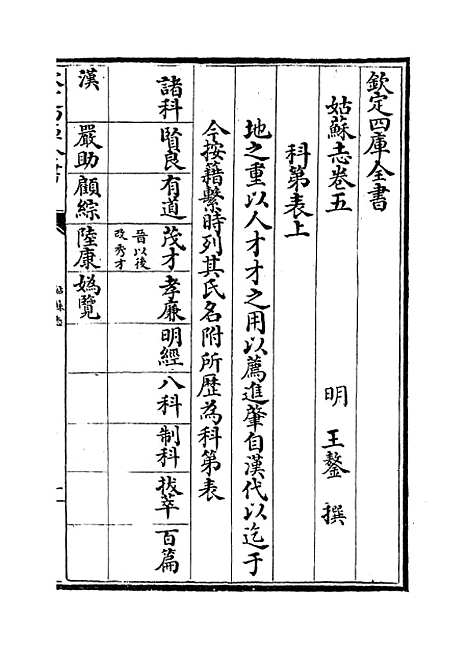 欽定四庫全書
姑蘇志卷五
明 王鏊 撰
科第表上
地之重以人才才之用以薦進肇自漢代以迄于
今按籍繫時列其氏名附所歴為科第表
諸科 賢良 有道 茂才 晉以後改秀才 孝廉 明經 八科 制科 拔萃 百篇
漢 嚴助 顧綜 陸康 媯覽